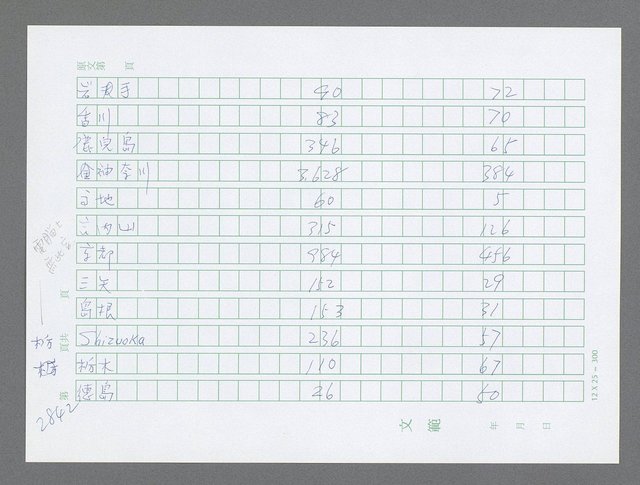 原文第 頁
岩手 40 72
香川 83 70
鹿児島 346 65
神奈川 3,628 384
高地 60 5
山 315 126
京都 984 456
三矢 152 29
島根 153 31
Shizuoka 236 57
栃木 110 67
徳島 26 50
電腦上
無此字
栃
頁共
頁
第
2842
文 範
年 月 日
12 X 25 = 300